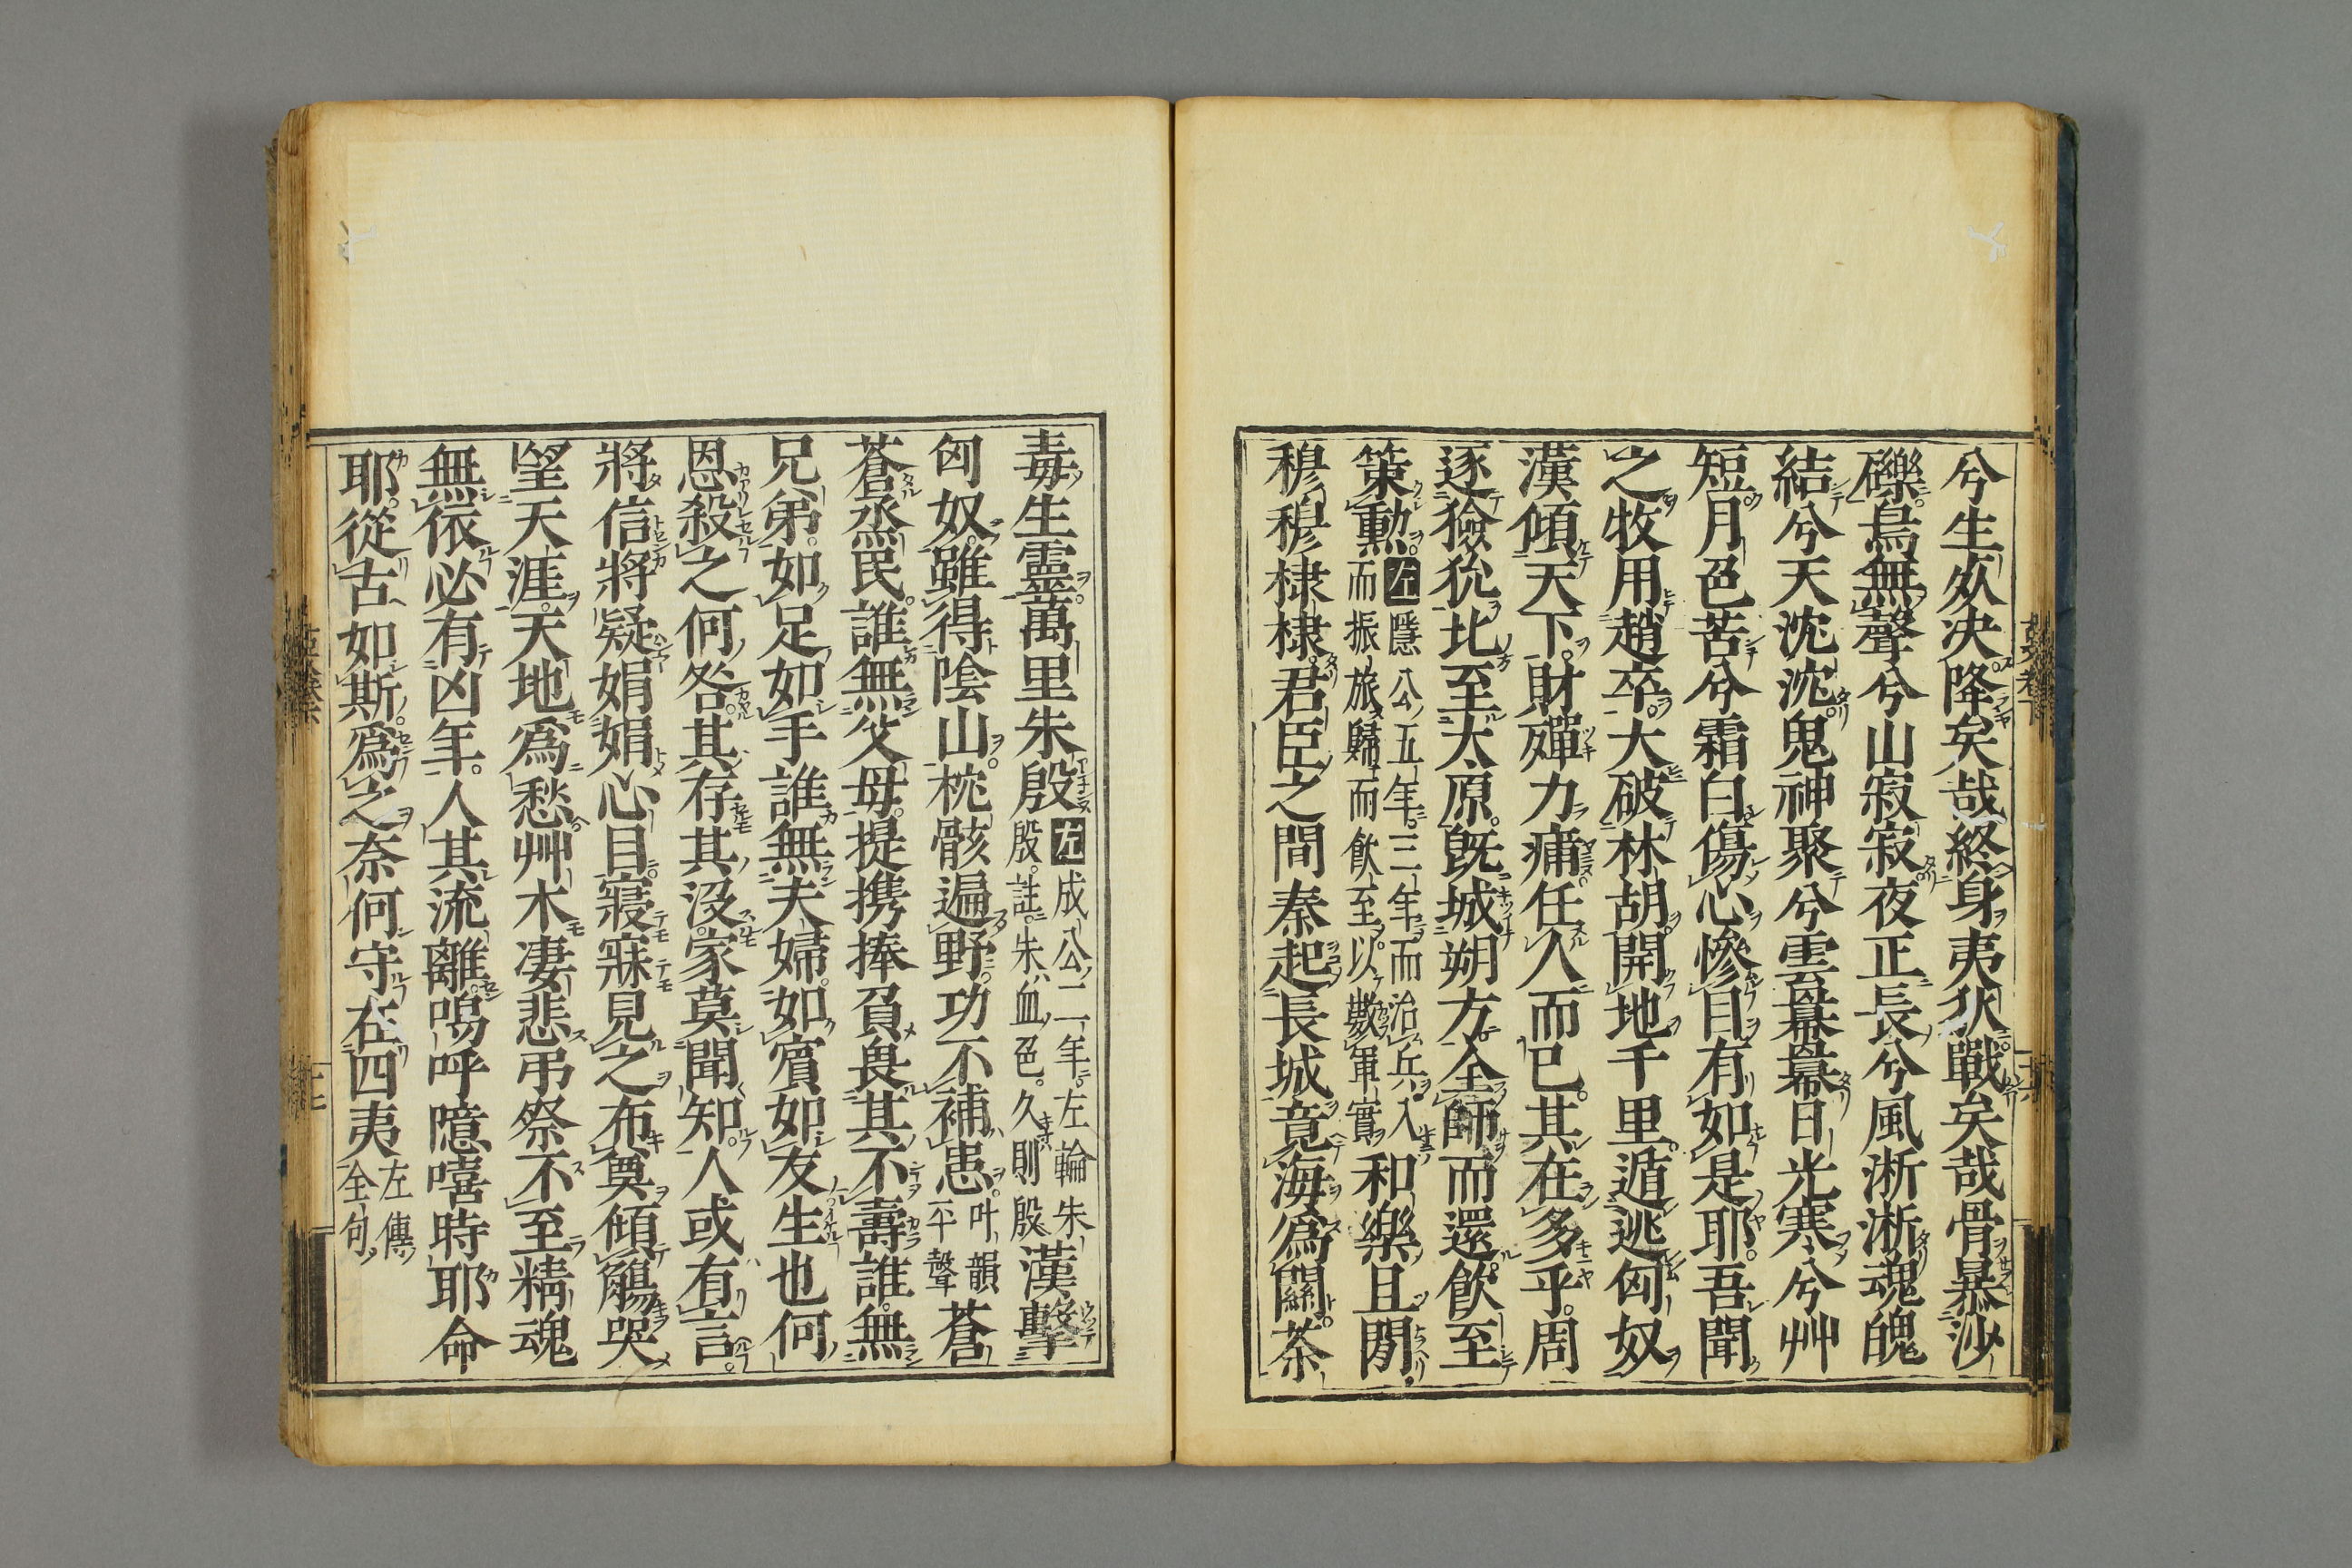 兮生死决降矣哉終身夷狄戰矣哉骨暴沙
礫鳥無聲兮山寂寂夜正長兮風淅淅魂魄
結兮天沈沈鬼神聚兮雲冪冪日光寒兮艸
短月色苦兮霜白傷心慘目有如是耶吾聞
之牧用趙卒大破林胡開地千里遁逃匈奴
漢傾天下財殫力痛任人而已其在多乎周
逐獫狁北至太原既城朔方全師而還飲至
策勲左隱公五年三年而治兵入而振旅歸而飲至以數軍實和樂且閑
穆穆棣棣君臣之間秦起長城竟海爲關荼
毒生靈萬里朱殷左成公二年左輪朱殷註朱血色久則殷漢擊
匈奴雖得陰山枕骸遍野功不補患叶韻平聲蒼
蒼烝民誰無父母提携捧負畏其不壽誰無
兄弟如足如手誰無夫婦如賓如友生也何
恩殺之何咎其存其沒家莫聞知人或有言
將信將疑娟娟心目寢寐見之布奠傾觴哭
望天涯天地爲愁艸木凄悲弔祭不至精魂
無依必有凶年人其流離嗚呼噫嘻時耶命
耶從古如斯爲之奈何守在四夷左傳全句